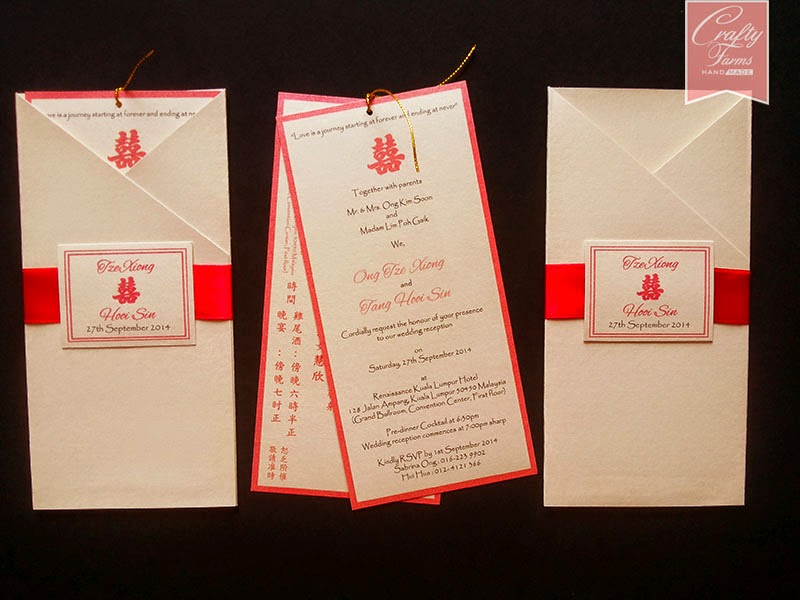 Crafty
Farms
HANDMADE
Love is a journey starting at forever and ending at
囍
Tze Xiong
and
囍
Hooi Sin
27th September 2014
"Love is a journey starting at forever and ending at never"
囍
Together with parents
Mr. & Mrs. Ong Kim Soon
and
Madam Lim Poh Gaik
We,
Ong Tze Xiong
and
Tang Hooi Sin
Cordially request the honour of your presence
to our wedding reception
on
Saturday, 27th September 2014
at
Renaissance Kuala Lumpur Hotel
128 Jalan Ampang, Kuala Lumpur 50450 Malaysia
(Grand Ballroom, Convention Center, First floor)
Pre-dinner Cocktail at 6:30pm
Wedding reception commences at 7:00pm sharp
Kindly RSVP by 1st September 2014
Sabrina Ong : 016-223 9902
Hui Hua : 012-4121 366
慧欣
時間
雞尾酒：傍晚六時半正
晚宴：傍晚七时正
恕乏階催
敬請准時
Tze Xiong
and
囍
Hooi Sin
27th September 2014